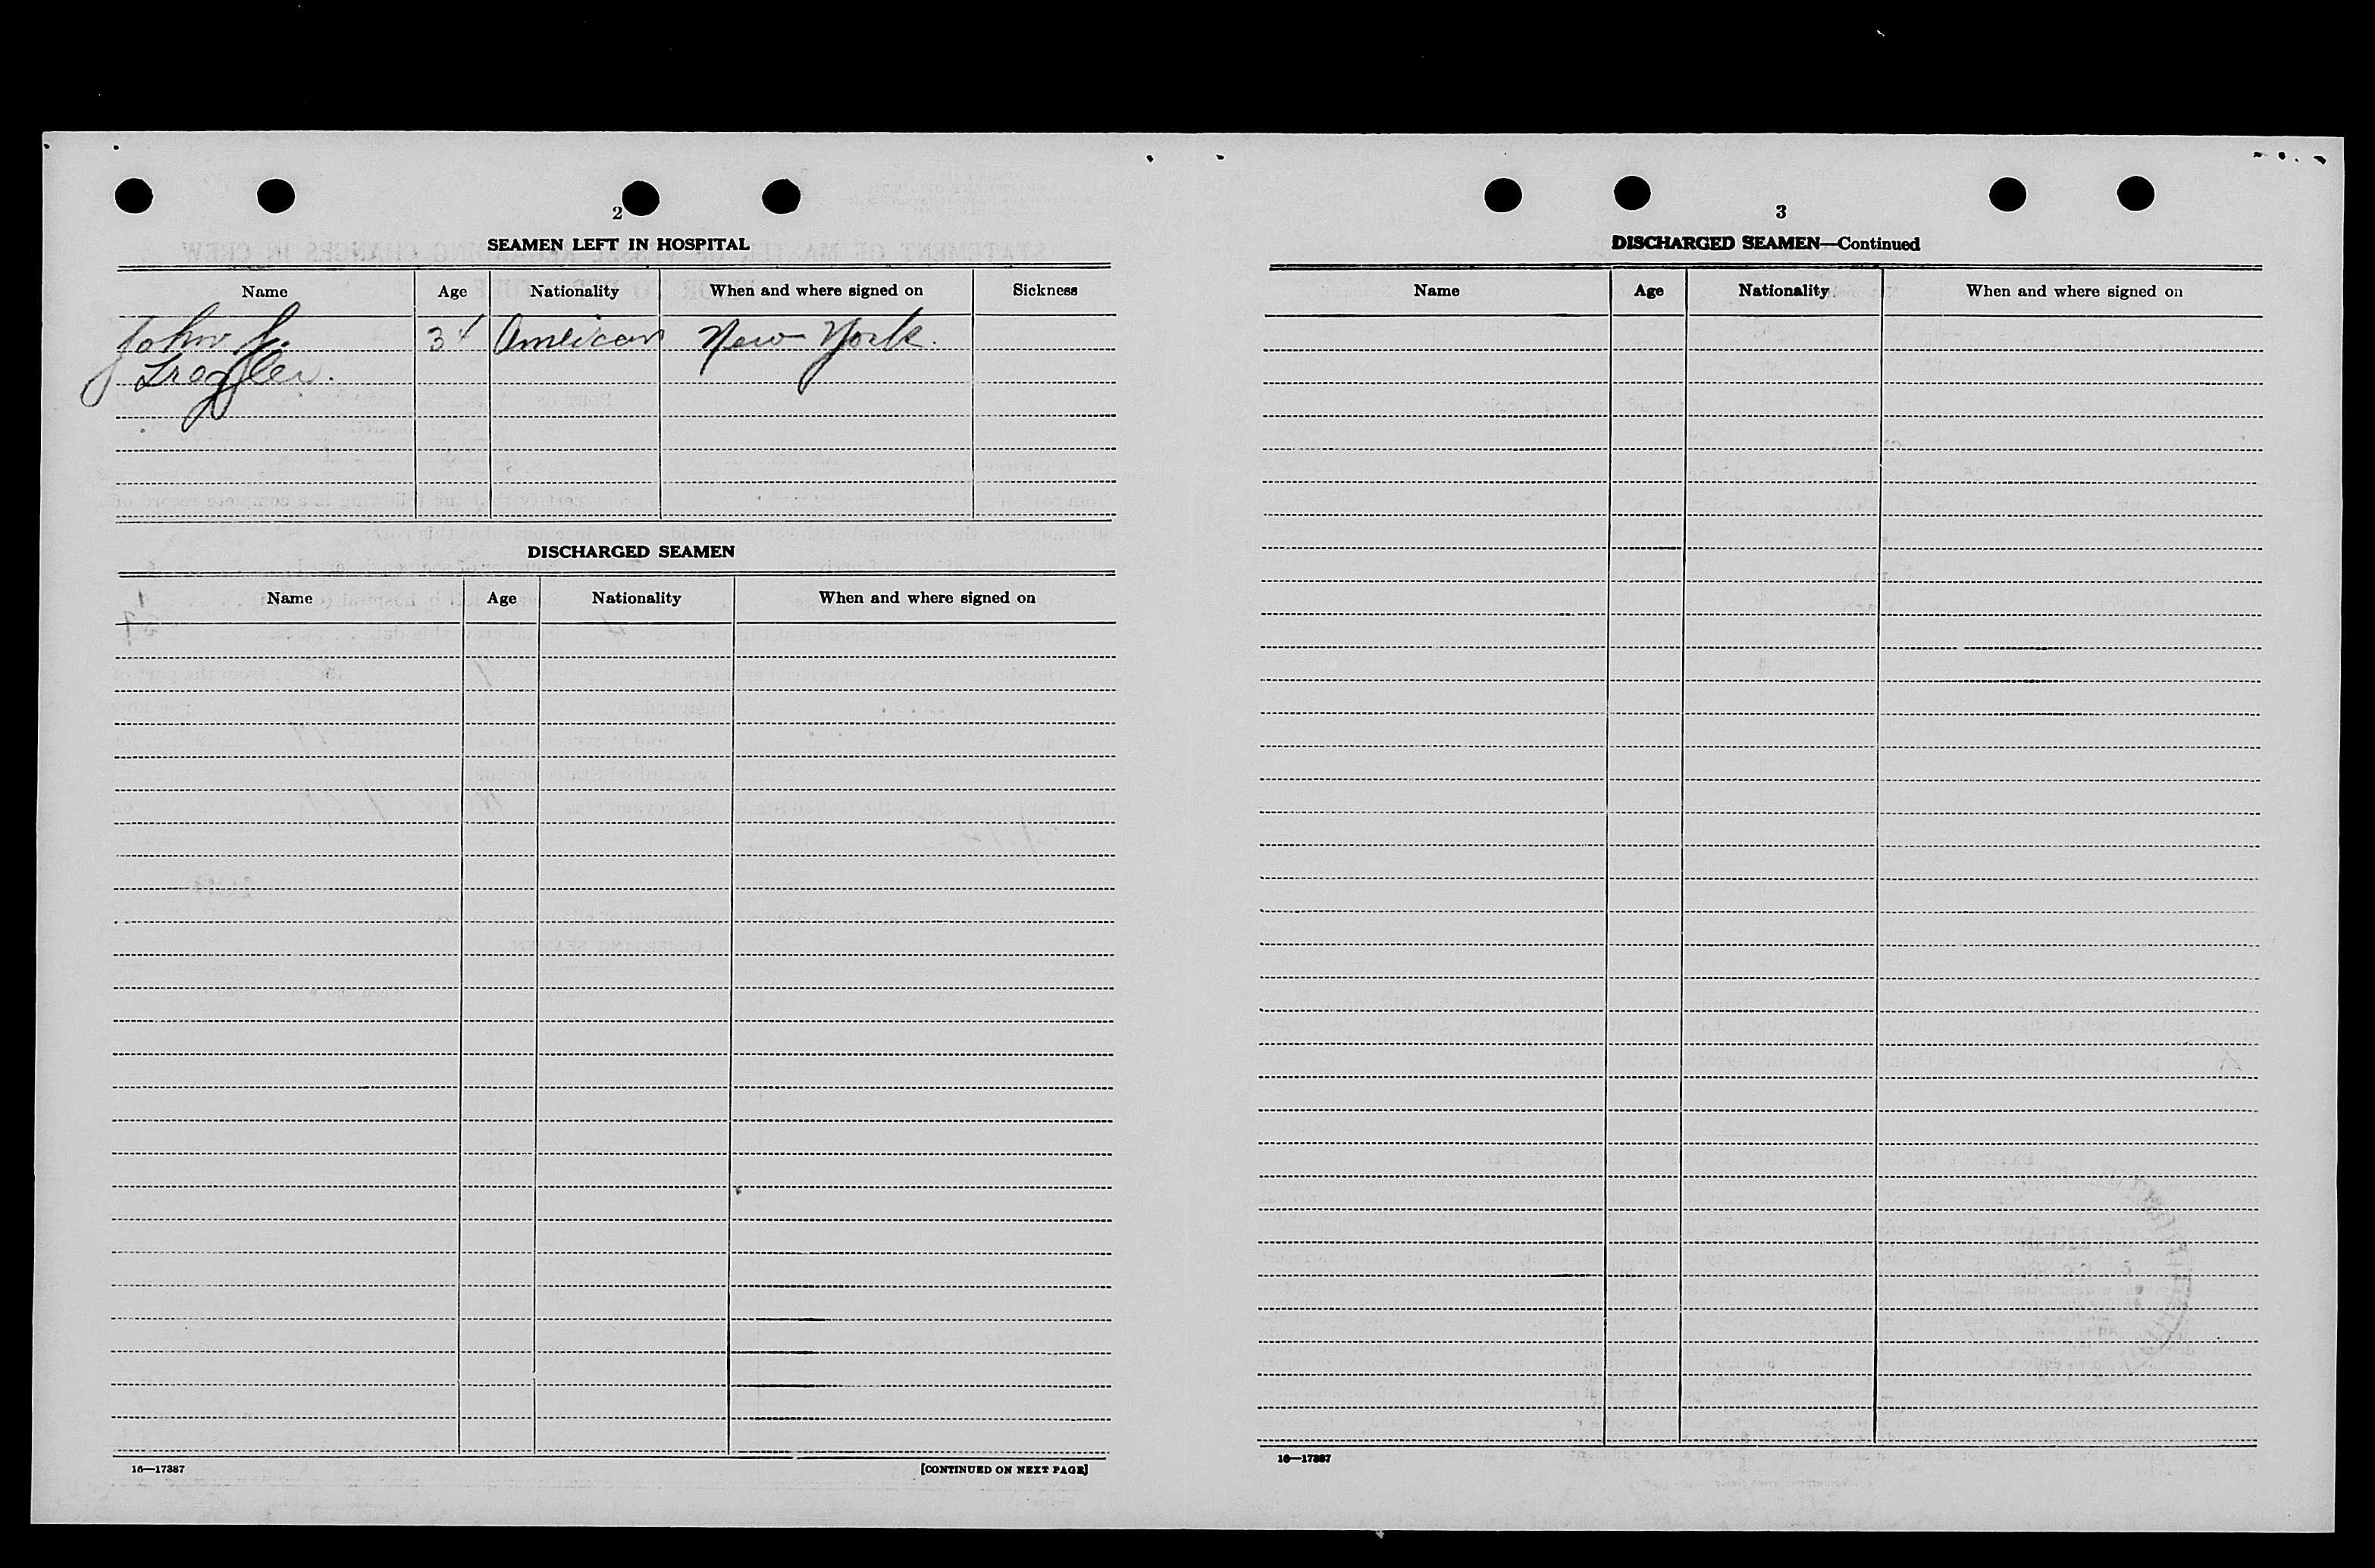 2
SEAMEN LEFT IN HOSPITAL
Name Age Nationality When and where signed on Sickness
John J. 34 American New York.
DISCHARGED SEAMEN
Name Age Nationality When and where signed on
16—17387
[CONTINUED ON NEXT PAGE]
3
DISCHARGED SEAMEN—Continued
Name Age Nationality When and where signed on
16—17387